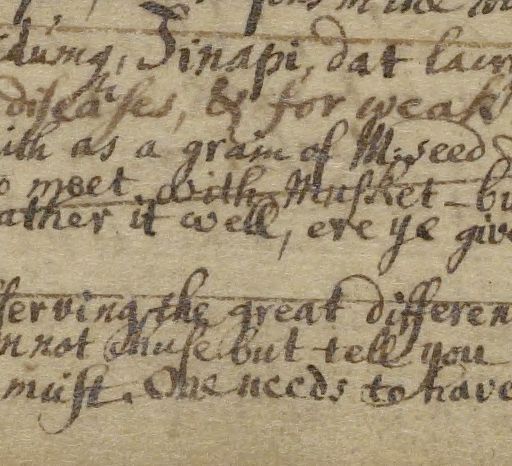 Sinapi, dat lacry
diseases, & for weak
ith as a grain of M: seed
o meet with Musket - bu
ather it well, ere ye give
serving the great differen
nnot chuse but tell you
must. One needs to have